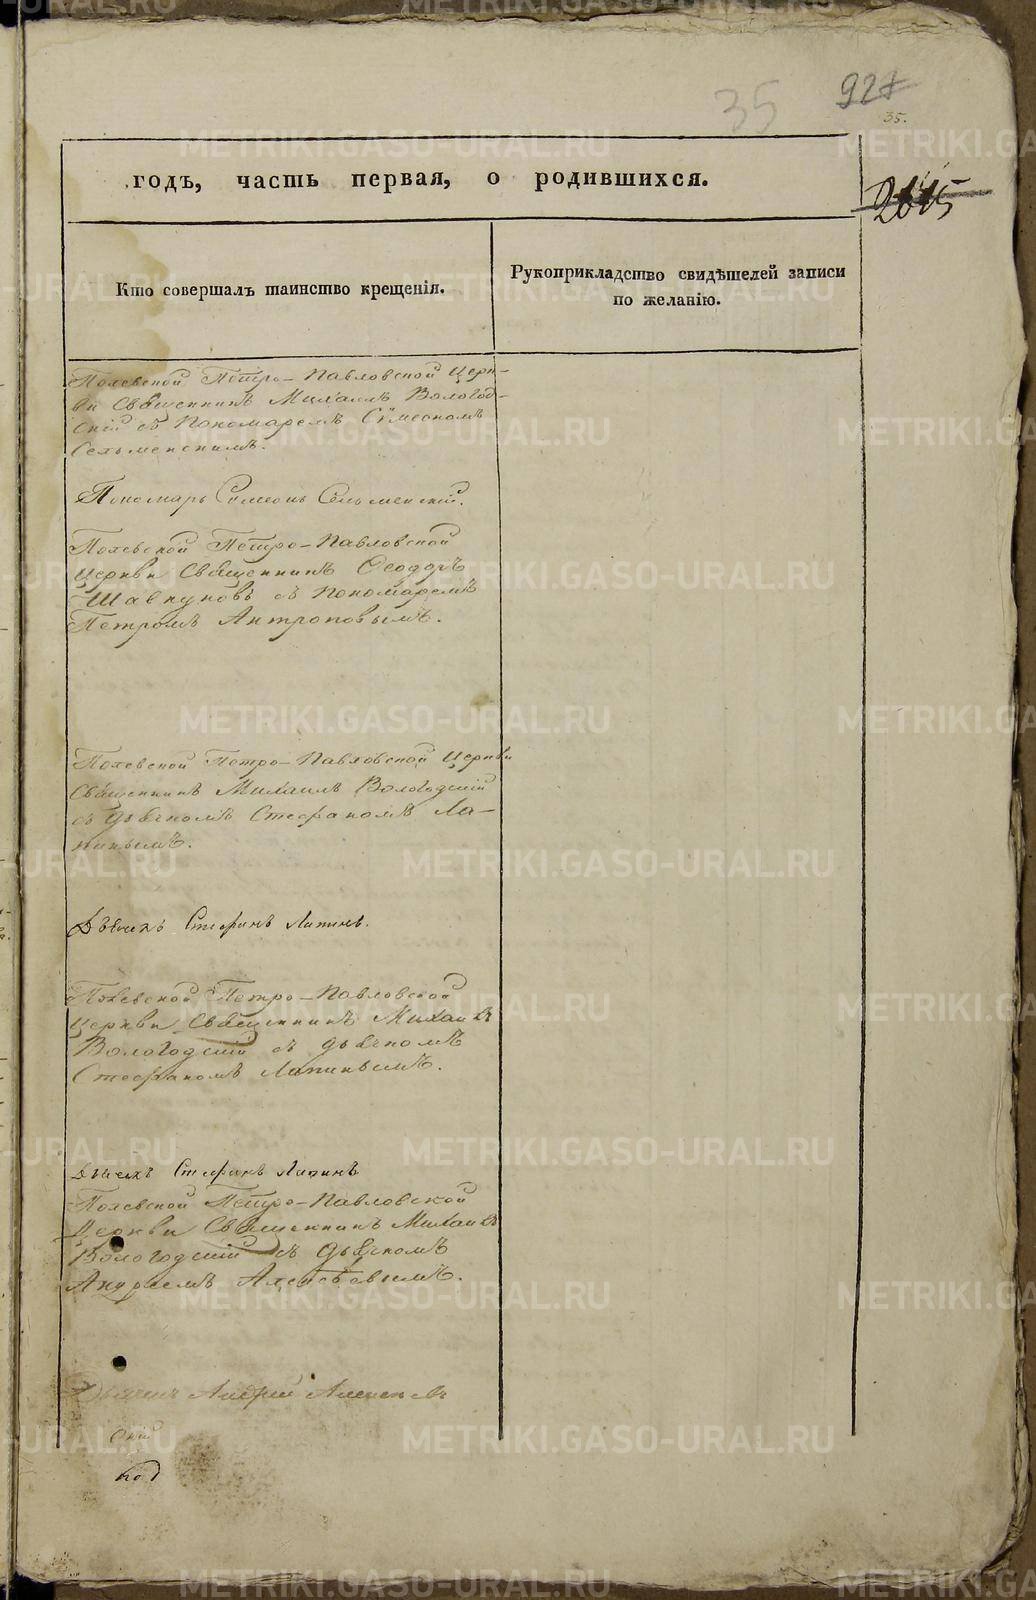 35
927
35.
годъ, часть первая, о родившихся.
Кто совершалъ таинство крещенія.
Рукоприкладство свидѣтелей записи
по желанію.
Полевской Петро-Павловской Церк-
ви Священникъ Михаилъ Вологод-
скій съ Пономаремъ Сѵмеономъ
Сельменскимъ.
Пономарь Симеонъ Сельменскій.
Полевской Петро-Павловской
Церкви Священникъ Ѳеодоръ
Шавкуновъ съ Пономаремъ
Петромъ Антроповымъ.
Полевской Петро-Павловской Церкви
Священникъ Михаилъ Вологодскій
съ дьячкомъ Стефаномъ Ла-
пинымъ.
Дьячекъ Стефанъ Лапинъ.
Полевской Петро-Павловской
Церкви Священникъ Михаилъ
Вологодскій съ дьячкомъ
Стефаномъ Лапинымъ.
Дьячекъ Стефанъ Лапинъ
Полевской Петро-Павловской
Церкви Священникъ Михаилъ
Вологодскій съ дьячкомъ
Андреемъ Алексѣевымъ.
Дьячекъ Андрей Алексѣевъ
METRIKI.GASO-URAL.RU